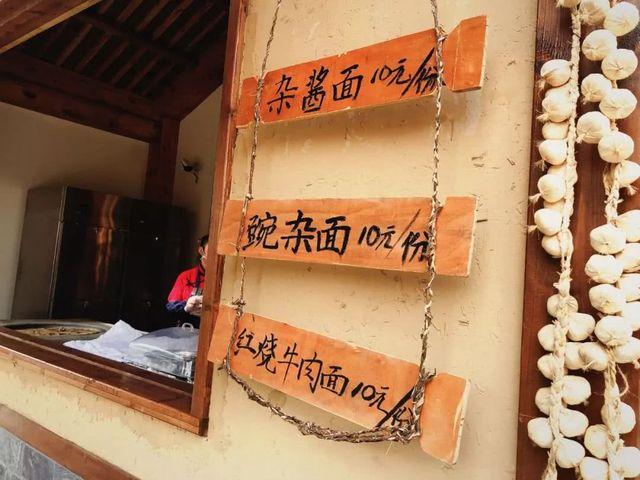 杂酱面10元/份
豌杂面10元/份
红烧牛肉面10元/份